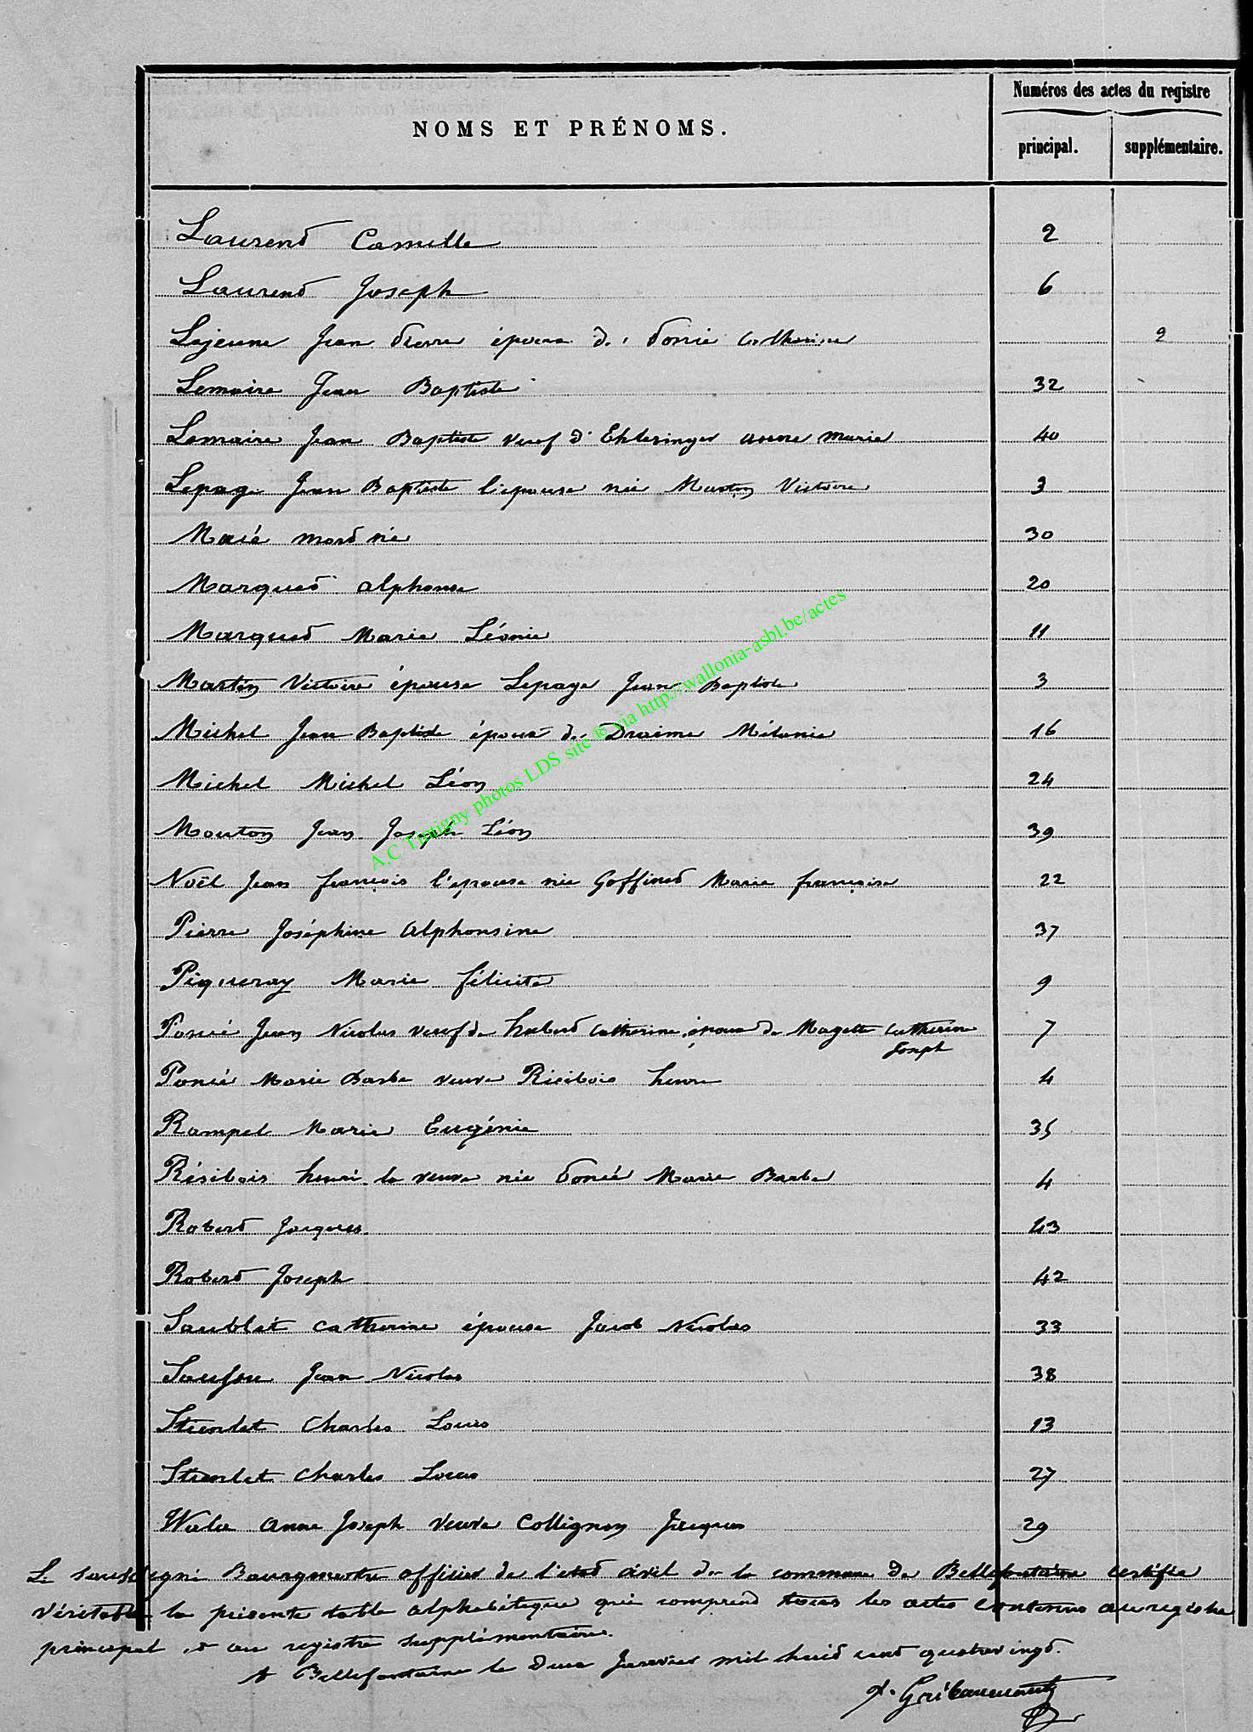 Numéros des actes du registre
NOMS ET PRÉNOMS.
principal. supplémentaire.
Laurent Camille 2
Laurent Joseph 6
Lejeune Jean Pierre époux de Poncé Catherine 2
Lemaire Jean Baptiste 32
Lemaire Jean Baptiste veuf d'Ehleringer anne marie 40
Lepage Jean Baptiste l'épouse née Marton Victoire 3
Macé mort né 30
Marquet alphonse 20
Marquet Marie Léonie 11
Marton Victoire épouse Lepage Jean Baptiste 3
Michel Jean Baptiste époux de Draime Mélanie 16
Michel Michel Léon 24
Mouton Jean Joseph Léon 39
Noël Jean françois l'épouse née Goffinet Marie françoise 22
Pierre Joséphine Alphonsine 37
Piqueray Marie félicité 9
Poncé Jean Nicolas veuf de hubert Catherine, époux de Magette Catherine 7
Joseph
Poncé Marie Barbe veuve Résibois henri 4
Rampel Marie Eugénie 35
Résibois henri la veuve née Poncé Marie Barbe 4
Robert Jacques 43
Robert Joseph 42
Saublet catherine épouse Jacob Nicolas 33
Jean Nicolas 38
Charles Louis 13
Charles Louis 27
anne Joseph veuve Collignon Jacques 29
Le soussigné Bourgmestre officier de l'etat civil de la commune de Bellefontaine certifie
véritable la présente table alphabétique qui comprend tous les actes contenus au registre
principal et au registre supplémentaire.
A Bellefontaine le Deux Janvier mil huit cent quatre vingt.
A. Gribaumont
A.C Tintigny photos LDS site ® via http://wallonia-asbl.be/actes